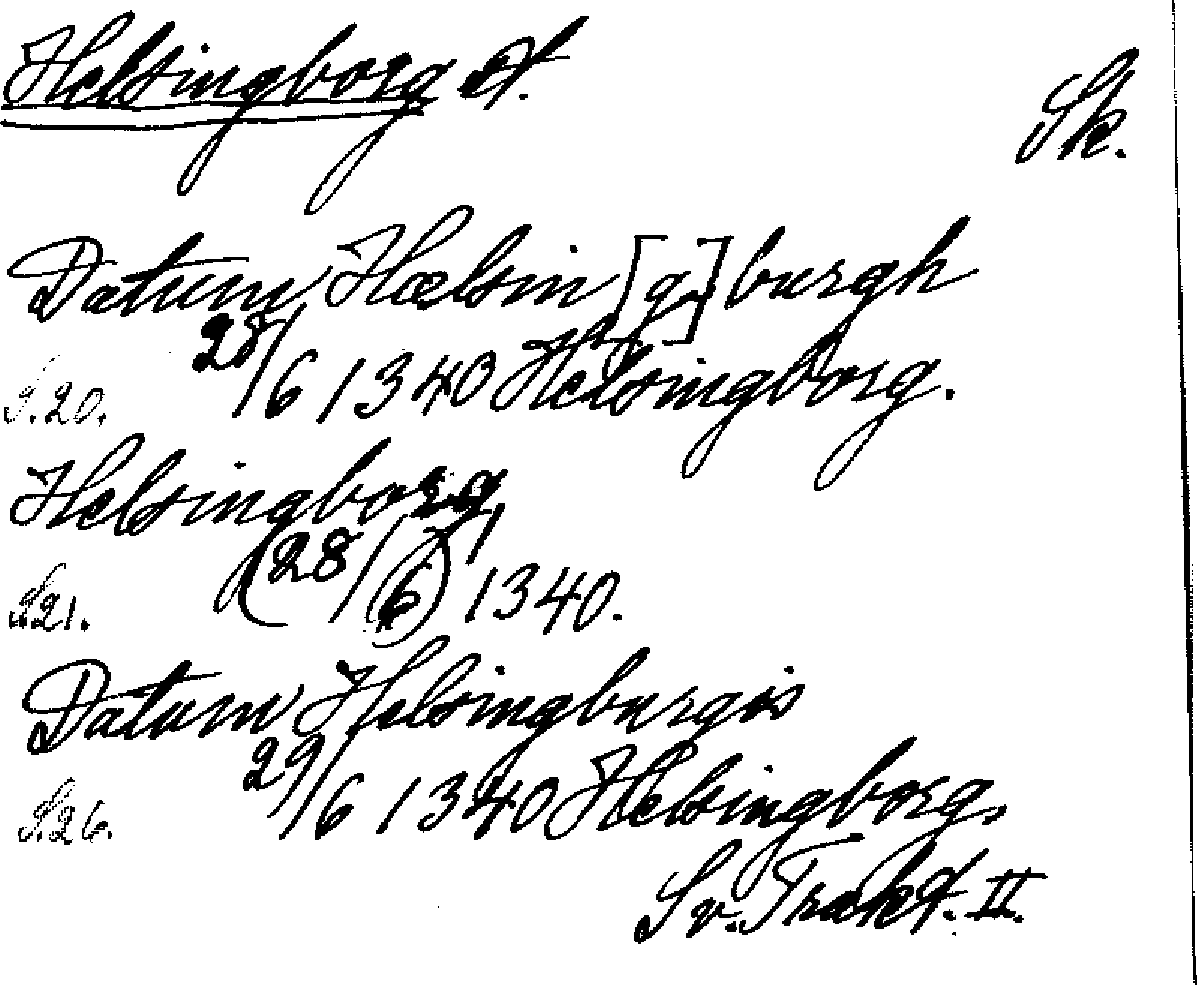 Helsingborg st.
Sk.
Datum Hælsin[g]burgh
S.20. 28/6 1340 Helsingborg.
Helsingborg
S.21. (28/6) 1340.
Datum Helsingburgis
S.26. 29/6 1340 Helsingborg.
Sv. Trakt. II.